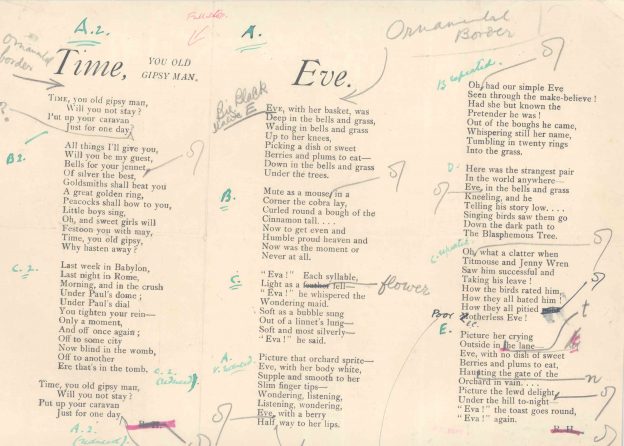 A.2.
Full stop.
Ornamental
border
Time,
YOU OLD
GIPSY MAN.
TIME, you old gipsy man,
Will you not stay?
Put up your caravan
Just for one day?
?
B2
All things I'll give you,
Will you be my guest,
Bells for your jennet
Of silver the best,
Goldsmiths shall beat you
A great golden ring,
Peacocks shall bow to you,
Little boys sing,
Oh, and sweet girls will
Festoon you with may,
Time, you old gipsy,
Why hasten away?
C.2.
Last week in Babylon,
Last night in Rome,
Morning, and in the crush
Under Paul's dome;
Under Paul's dial
You tighten your rein—
Only a moment,
And off once again;
Off to some city
Now blind in the womb,
Off to another
Ere that's in the tomb.
C.2.
(reduced).
Time, you old gipsy man,
Will you not stay?
Put up your caravan
Just for one day,
R. H.
A.2.
(reduced)
A.
Ornamental
Border
Eve.
Big Black
EVE, with her basket, was
Deep in the bells and grass,
Wading in bells and grass
Up to her knees,
Picking a dish of sweet
Berries and plums to eat—
Down in the bells and grass
Under the trees.
B.
Mute as a mouse in a
Corner the cobra lay,
Curled round a bough of the
Cinnamon tall. . . .
Now to get even and
Humble proud heaven and
Now was the moment or
Never at all.
C
" Eva ! " Each syllable,
Light as a feather fell—
flower
" Eva ! " he whispered the
Wondering maid.
Soft as a bubble sung
Out of a linnet's lung—
Soft and most silverly—
" Eva ! " he said.
A.
Picture that orchard sprite—
Eve, with her body white,
Supple and smooth to her
Slim finger tips—
Wondering, listening,
Listening, wondering,
Eve, with a berry
Half way to her lips.
B repeated.
Oh, had our simple Eve
Seen through the make-believe !
Had she but known the
Pretender he was !
Out of the boughs he came,
Whispering still her name,
Tumbling in twenty rings
Into the grass.
D.
Here was the strangest pair
In the world anywhere—
Eve, in the bells and grass
Kneeling, and he
Telling his story low. . . .
Singing birds saw them go
Down the dark path to
The Blasphemous Tree.
C repeated.
Oh, what a clatter when
Titmouse and Jenny Wren
Saw him successful and
Taking his leave !
How the birds rated him,
How they all hated him !
How they all pitied
Poor
Motherless Eve !
E.
Picture her crying
Outside in the lane—
t
Eve, with no dish of sweet
Berries and plums to eat,
Haunting the gate of the
n
Orchard in vain. . . .
Picture the lewd delight
Under the hill to-night—
" Eva ! " the toast goes round,
" Eva ! " again.
R. H.